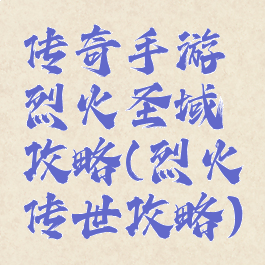 传奇手游
烈火圣域
攻略(烈火
传世攻略)